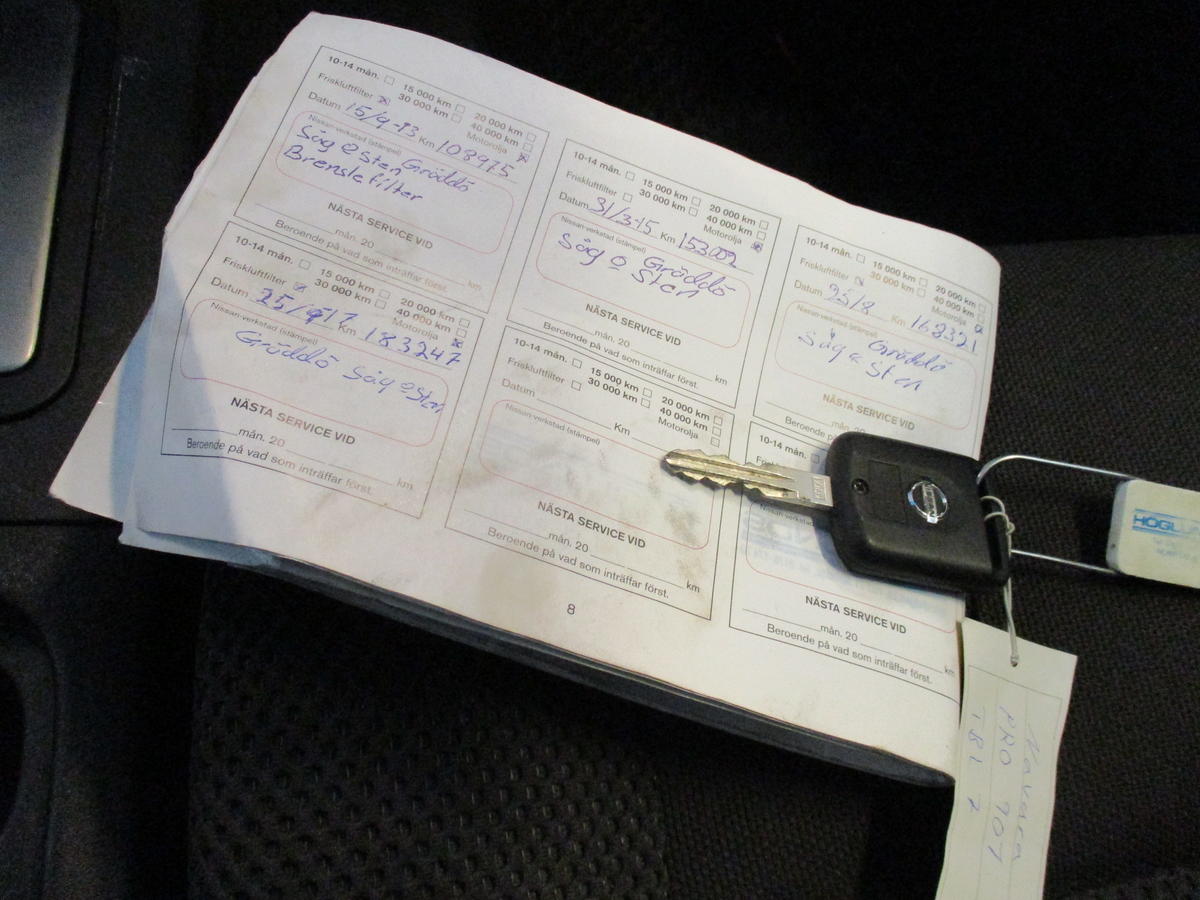 10-14 mån. 15 000 km 20 000 km
Friskluftfilter 30 000 km 40 000 km
Datum 15/9-13 Km 108975 Motorolja
Nissan-verkstad (stämpel)
Såg o Sten Gräddö
Brenslefilter
NÄSTA SERVICE VID
mån. 20
Beroende på vad som inträffar först. km
10-14 mån. 15 000 km 20 000 km
Friskluftfilter 30 000 km 40 000 km
Datum 31/3-15 Km 153002 Motorolja
Nissan-verkstad (stämpel)
Såg o Gräddö
Sten
NÄSTA SERVICE VID
mån. 20
Beroende på vad som inträffar först. km
10-14 mån. 15 000 km 20 000 km
Friskluftfilter 30 000 km 40 000 km
Datum 25/8 Km 168321 Motorolja
Nissan-verkstad (stämpel)
Såg o Gräddö
Sten
NÄSTA SERVICE VID
mån. 20
Beroende på
10-14 mån. 15 000 km 20 000 km
Friskluftfilter 30 000 km 40 000 km
Datum Km 183247 Motorolja
Nissan-verkstad (stämpel)
Gräddö Såg o Sten
NÄSTA SERVICE VID
mån. 20
Beroende på vad som inträffar först. km
10-14 mån. 15 000 km 20 000 km
Friskluftfilter 30 000 km 40 000 km
Datum Km Motorolja
Nissan-verkstad (stämpel)
NÄSTA SERVICE VID
mån. 20
Beroende på vad som inträffar först. km
10-14 mån.
Nissan-verkstad
NÄSTA SERVICE VID
mån. 20
Beroende på vad som inträffar först. km
8
NISSAN
Navara
PRO 907
TBL 7